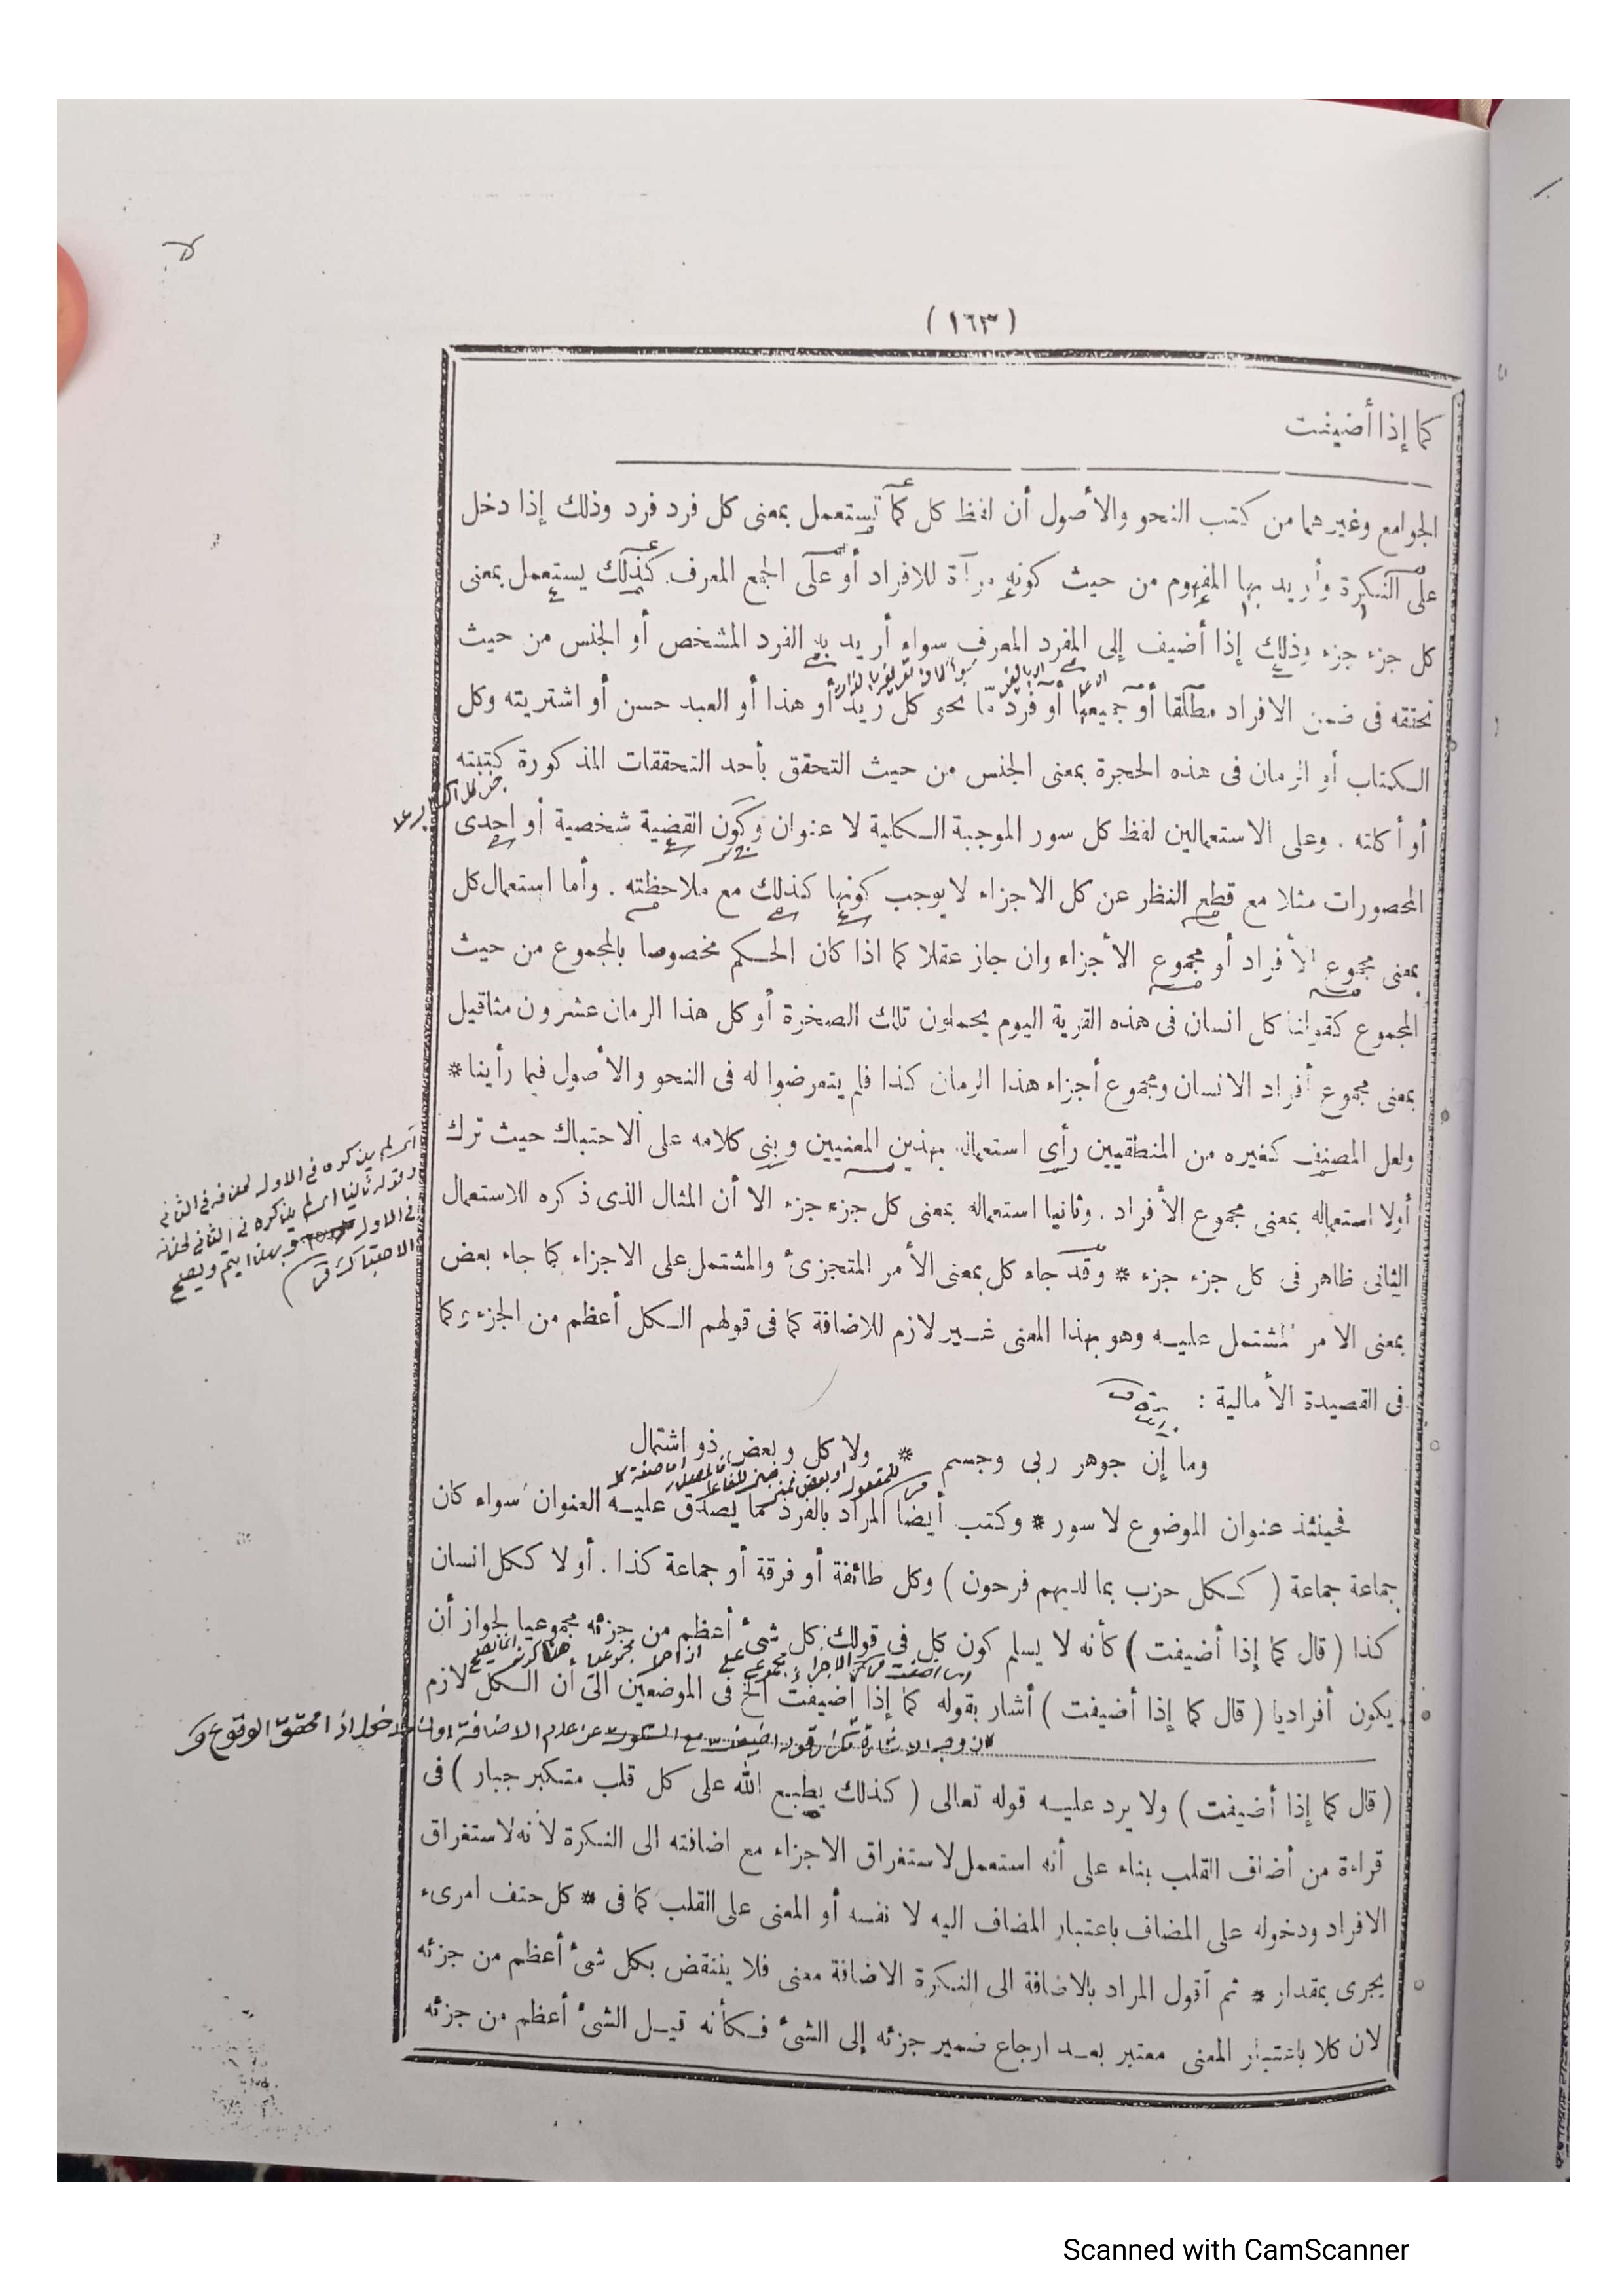 ( ١٦٣ )
كما إذا أضيفت
الجوامع وغيرهما من كتب النحو والأصول أن لفظ كل كما تستعمل بمعنى كل فرد فرد وذلك إذا دخل
على النكرة وأريد بها المفهوم من حيث كونه مرآة للافراد أو على الجمع المعرف كذلك يستعمل بمعنى
كل جزء جزء وذلك إذا أضيف إلى المفرد المعرف سواء أريد به الفرد المشخص أو الجنس من حيث
تحققه فى ضمن الافراد مطلقا أو جميعها أو فرد ما نحو كل زيد أو هذا أو العبد حسن أو اشتريته وكل
الكتاب أو الرمان فى هذه الحجرة بمعنى الجنس من حيث التحقق بأحد التحققات المذكورة كتبته
أو أكلته . وعلى الاستعمالين لفظ كل سور الموجبة الكلية لا عنوان وكون القضية شخصية أو احدى
المحصورات مثلا مع قطع النظر عن كل الاجزاء لا يوجب كونها كذلك مع ملاحظته . وأما استعمال كل
بمعنى مجموع الأفراد أو مجموع الأجزاء وان جاز عقلا كما اذا كان الحكم مخصوصا بالمجموع من حيث
المجموع كقولنا كل انسان فى هذه القرية اليوم يحملون تلك الصخرة أو كل هذا الرمان عشرون مثاقيل
بمعنى مجموع أفراد الانسان ومجموع أجزاء هذا الرمان كذا فلم يتعرضوا له فى النحو والأصول فيما رأينا *
ولعل المصنف كغيره من المنطقيين رأى استعماله بهذين المعنيين وبنى كلامه على الاحتباك حيث ترك
أولا استعماله بمعنى مجموع الأفراد . وثانيا استعماله بمعنى كل جزء جزء الا أن المثال الذى ذكره للاستعمال
الثانى ظاهر فى كل جزء جزء * وقد جاء كل بمعنى الأمر المتجزئ والمشتمل على الاجزاء كما جاء بعض
بمعنى الامر المشتمل عليه وهو بهذا المعنى غير لازم للاضافة كما فى قولهم الكل أعظم من الجزء وكما
فى القصيدة الأمالية :
وما إن جوهر ربى وجسم * ولا كل وبعض ذو اشتمال
فحينئذ عنوان الموضوع لا سور * وكتب أيضا المراد بالفرد مما يصدق عليه العنوان سواء كان
جماعة جماعة ( ككل حزب بما لديهم فرحون ) وكل طائفة أو فرقة أو جماعة كذا . أو لا ككل انسان
كذا ( قال كما إذا أضيفت ) كأنه لا يسلم كون كل فى قولك كل شئ أعظم من جزئه مجموعيا لجواز أن
يكون أفراديا ( قال كما إذا أضيفت ) أشار بقوله كما إذا أضيفت الخ فى الموضعين الى أن الكل لازم
( قال كما إذا أضيفت ) ولا يرد عليه قوله تعالى ( كذلك يطبع الله على كل قلب متكبر جبار ) فى
قراءة من أضاف القلب بناء على أنه استعمل لاستغراق الاجزاء مع اضافته الى النكرة لأنه لاستغراق
الافراد ودخوله على المضاف باعتبار المضاف اليه لا نفسه أو المعنى على القلب كما فى * كل حتف امرىء
يجرى بمقدار * ثم أقول المراد بالاضافة الى النكرة الاضافة معنى فلا ينتقض بكل شئ أعظم من جزئه
لان كلا باعتبار المعنى معتبر بعد ارجاع ضمير جزئه إلى الشئ فكأنه قيل الشئ أعظم من جزئه
Scanned with CamScanner